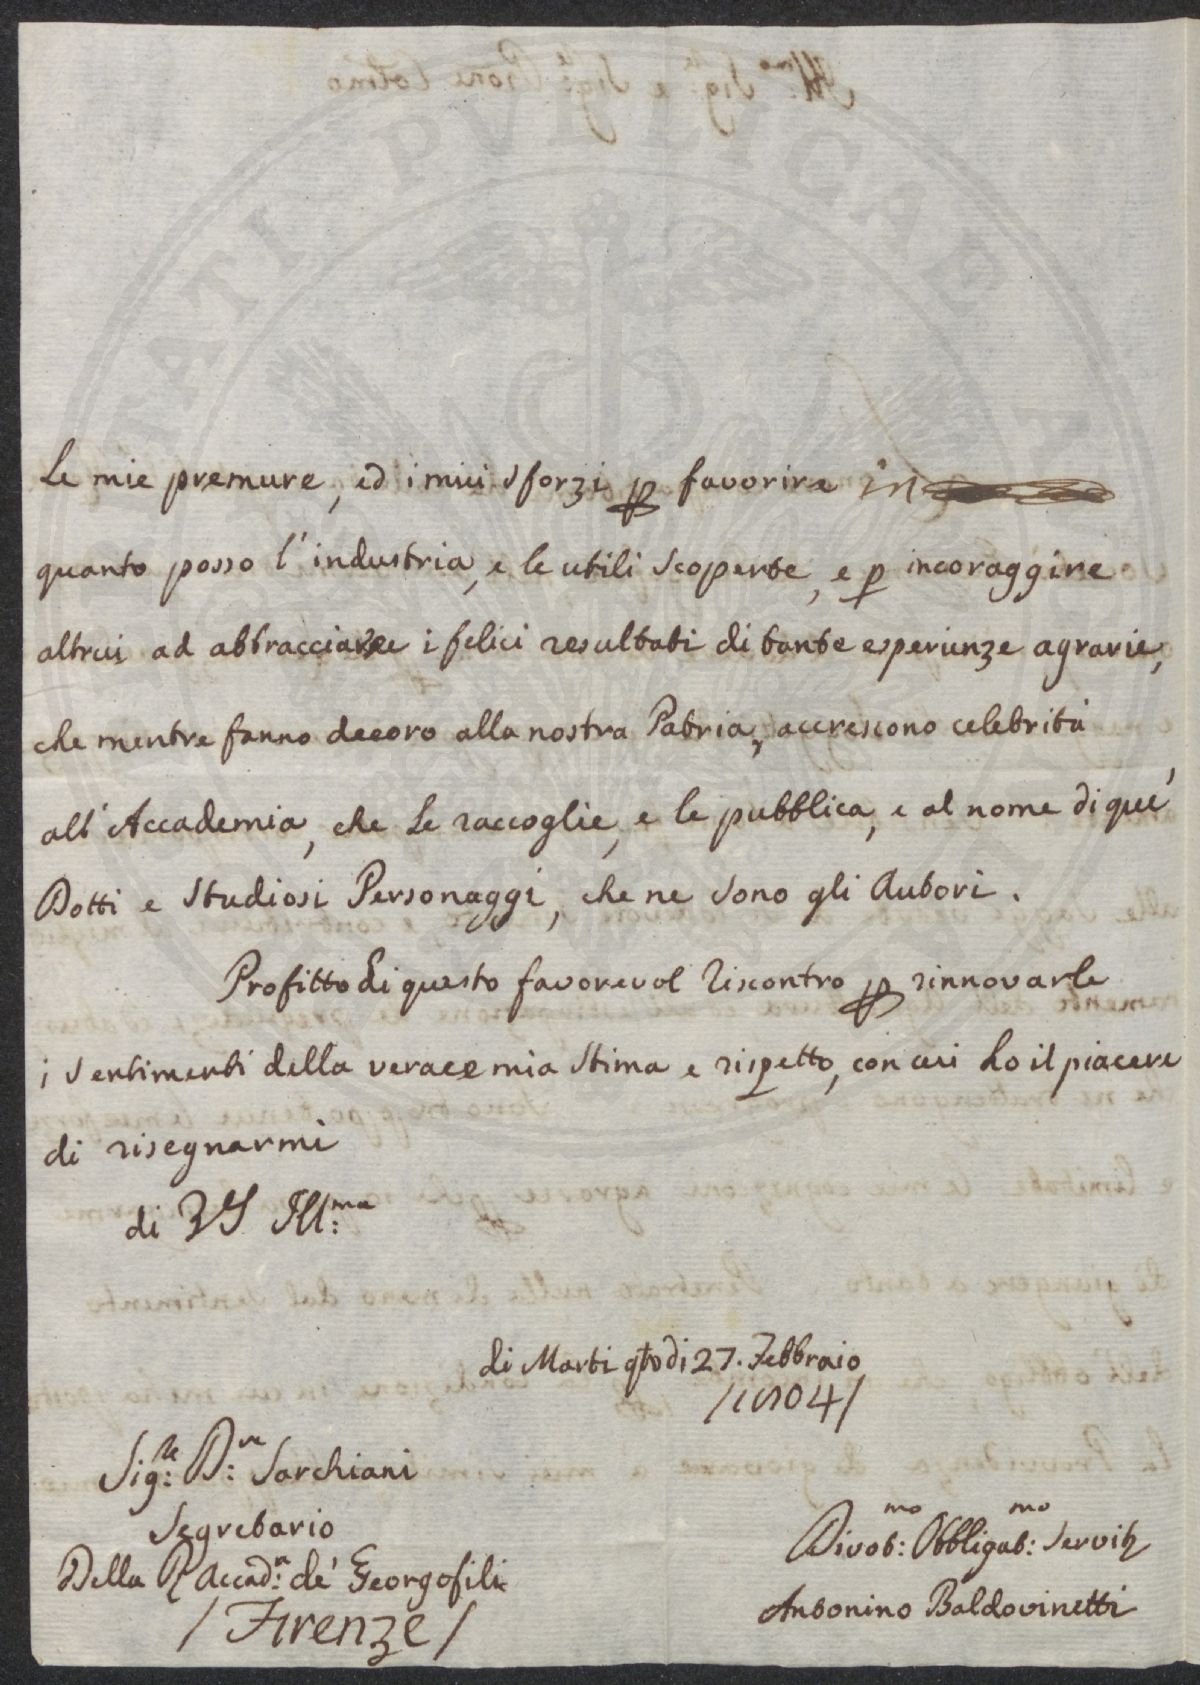 Le mie premure, ed i miei sforzi p favorire in
quanto posso l'industria, e le utili scoperte, e p incoraggire
altrui ad abbracciare i felici resultati di tante esperienze agrarie,
che mentre fanno decoro alla nostra Patria, accrescono celebrità
all'Accademia, che le raccoglie, e le pubblica, e al nome di que'
Dotti e Studiosi Personaggi, che ne sono gli Autori.
Profitto di questo favorevol riscontro p rinnovarle
i sentimenti della verace mia stima e rispetto, con cui ho il piacere
di risegnarmi
di VS Ill:ma
di Marti qto di 27. Febbraio
/1804/
Sig:re D:re Sarchiani
Segretario
Della R Accad:a de' Georgofili
/Firenze/
Divot:mo Obbligat:mo Servit
Antonino Baldovinetti